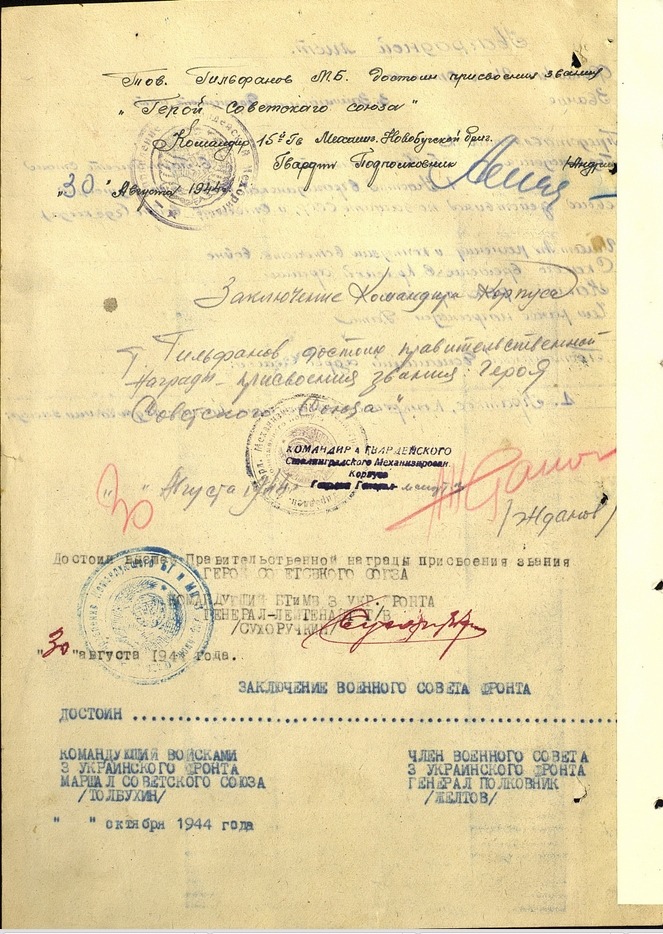 Тов. Гильфанов М.Б. достоин присвоения звания
"Герой Советского союза"
Командир 15й Гв Механиз. Новобугской бриг.
Гвардии Подполковник
"30" Августа 1944
Заключение Командира Корпуса
Гильфанов достоин правительственной
награды - присвоения звания Героя
Советского Союза"
КОМАНДИР 4 ГВАРДЕЙСКОГО
Сталинградского Механизирован.
Корпуса
Гвардии Генерал-майор
"30" Августа 1944г
/Жданов/
Достоин высшей Правительственной награды присвоения звания
ГЕРОЙ СОВЕТСКОГО СОЮЗА
КОМАНДУЮЩИЙ БТиМВ 3 УКР.ФРОНТА
ГЕНЕРАЛ-ЛЕЙТЕНАНТ Т/В
/СУХОРУЧКИН/
"30"августа 1944 года.
ЗАКЛЮЧЕНИЕ ВОЕННОГО СОВЕТА ФРОНТА
ДОСТОИН ........................................................
КОМАНДУЮЩИЙ ВОЙСКАМИ
3 УКРАИНСКОГО ФРОНТА
МАРШАЛ СОВЕТСКОГО СОЮЗА
/ТОЛБУХИН/
ЧЛЕН ВОЕННОГО СОВЕТА
3 УКРАИНСКОГО ФРОНТА
ГЕНЕРАЛ ПОЛКОВНИК
/ЖЕЛТОВ/
" " октября 1944 года